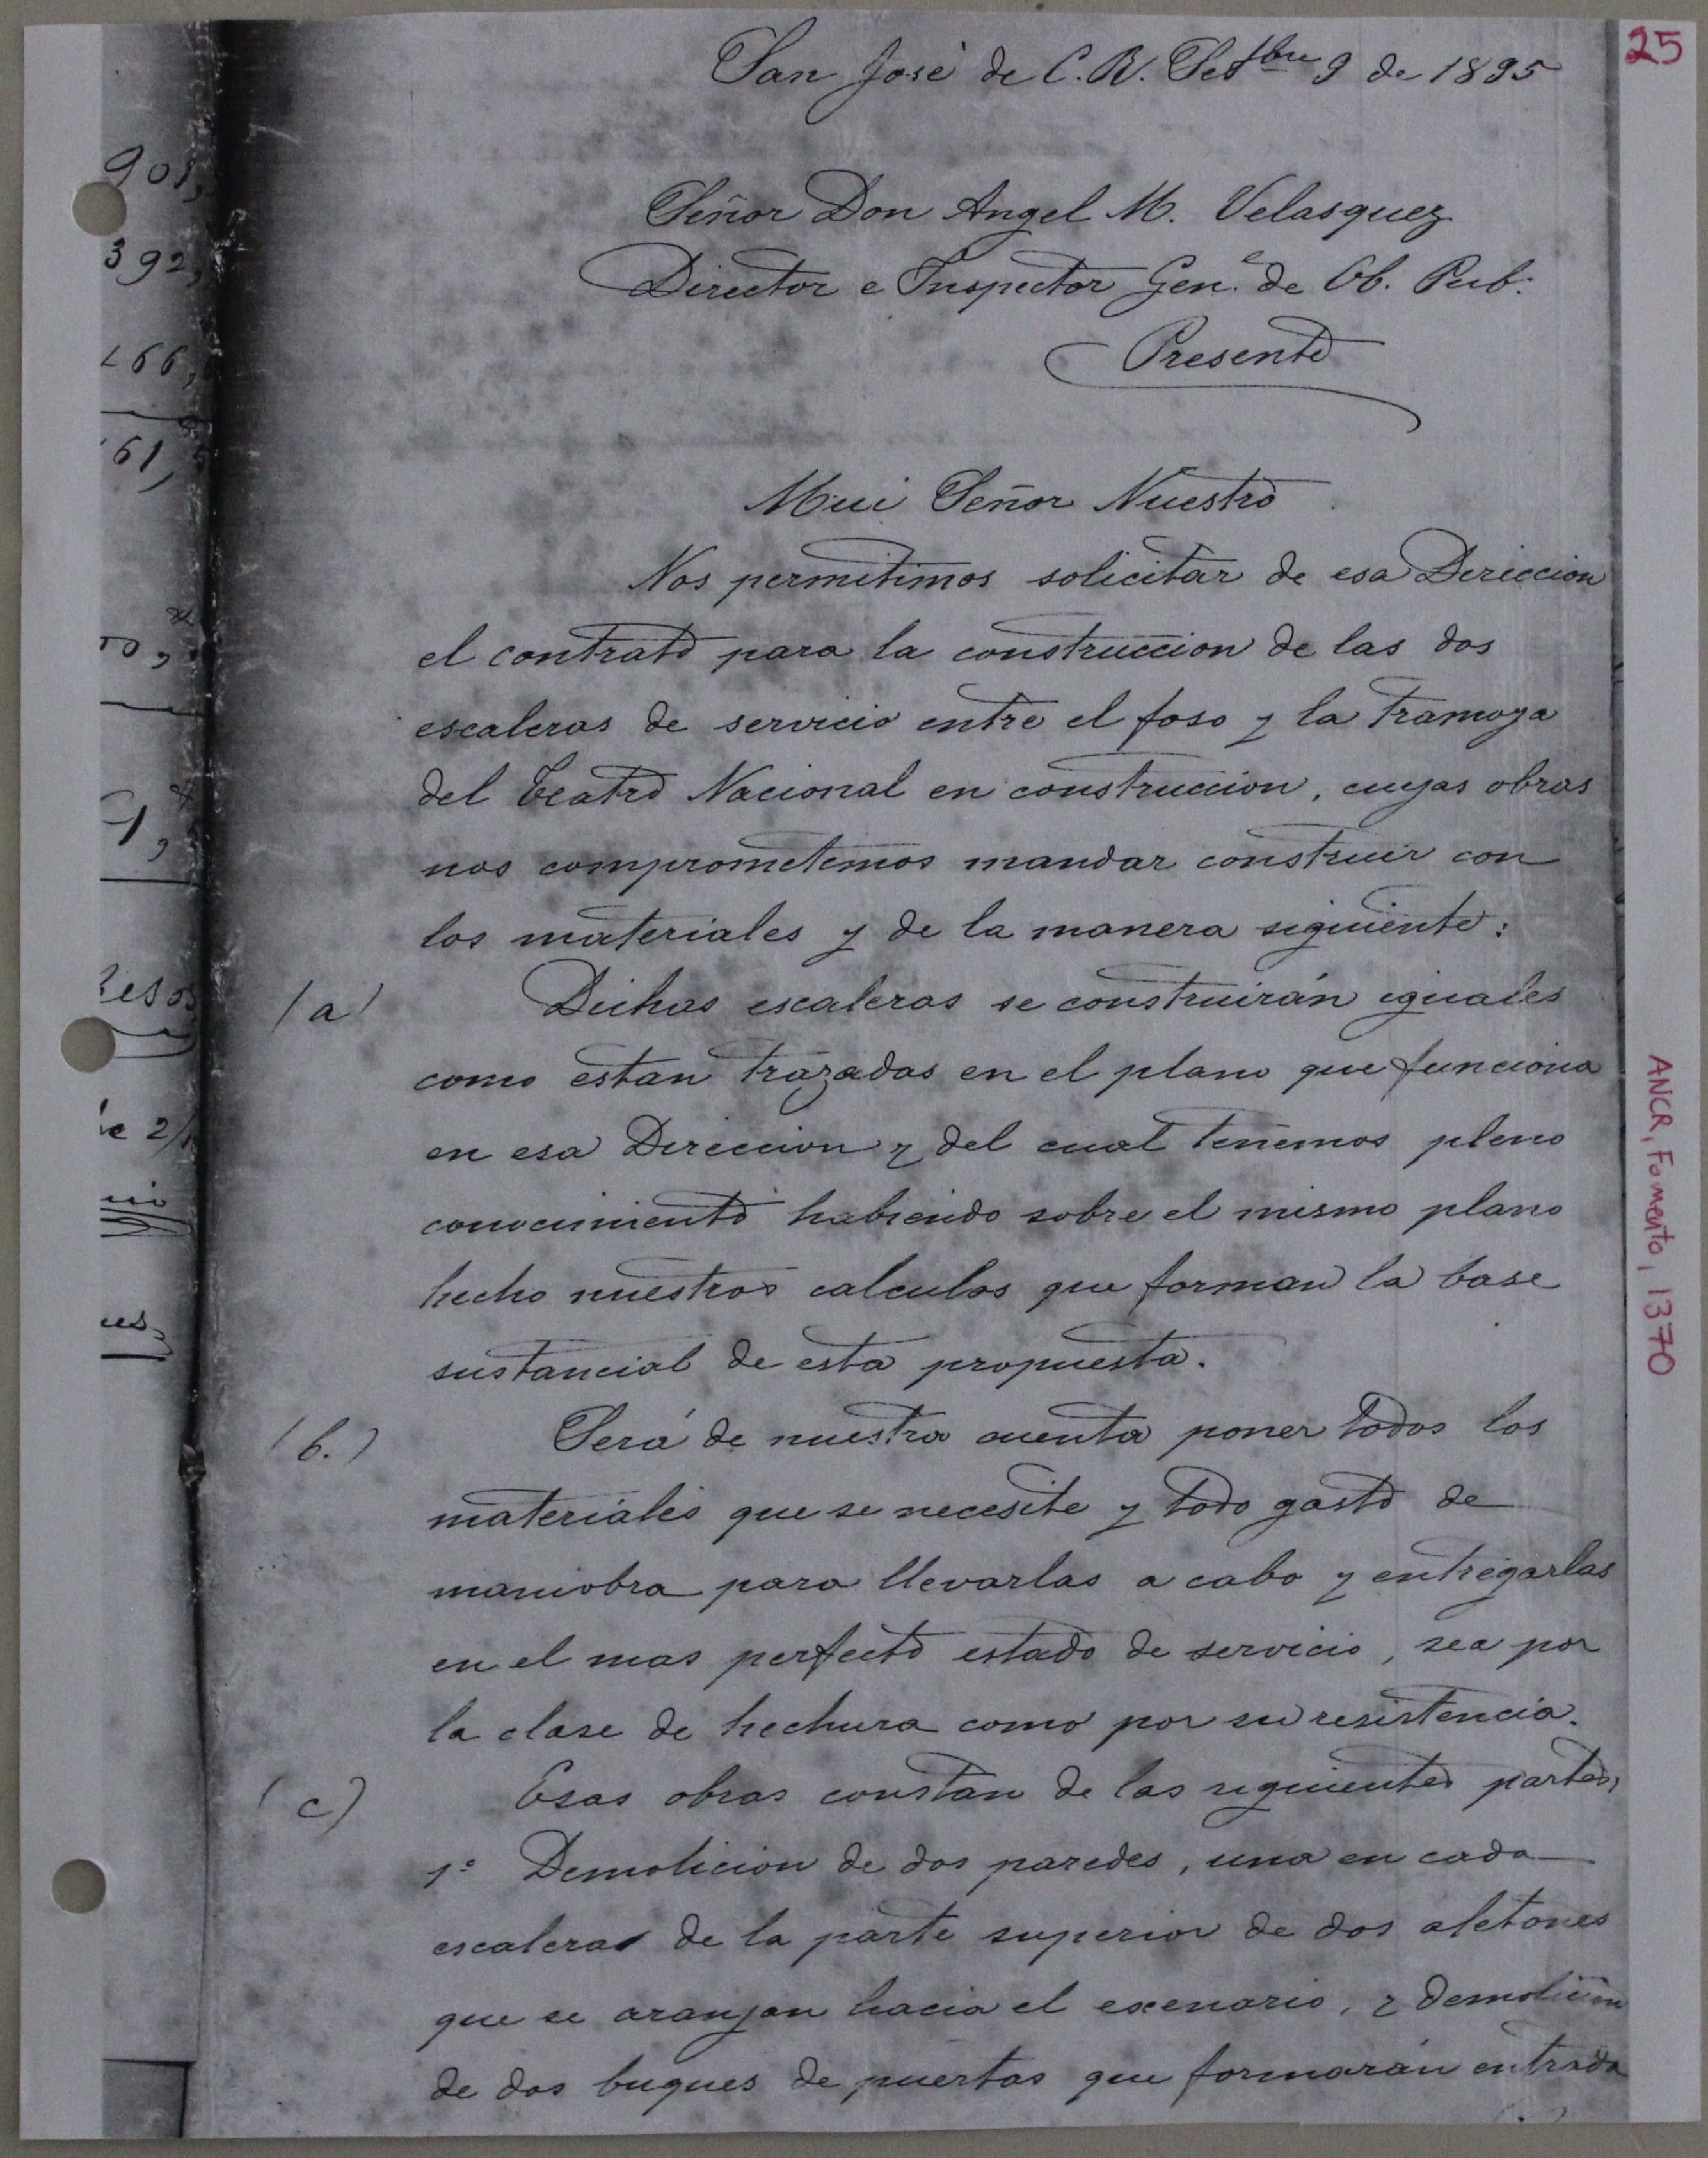 25
San José de C. R. Setbre 9 de 1895
Señor Don Angel M. Velasquez
Director e Inspector Gen.l de Ob. Pub:
Presente
Mui Señor Nuestro
Nos permitimos solicitar de esa Direccion
el contrato para la construccion de las dos
escaleras de servicio entre el foso y la tramoya
del Teatro Nacional en construccion, cuyas obras
nos comprometemos mandar construir con
los materiales y de la manera siguiente:
(a) Dichas escaleras se construirán iguales
como estan trazadas en el plano que funciona
en esa Direccion y del cual tenemos pleno
conocimiento habiendo sobre el mismo plano
hecho nuestros calculos que forman la base
sustancial de esta propuesta.
(b.) Será de nuestra cuenta poner todos los
materiales que se necesite y todo gasto de
maniobra para llevarlas a cabo y entregarlas
en el mas perfecto estado de servicio, sea por
la clase de hechura como por su resistencia.
(c) Esas obras constan de las siguientes partes,
1º Demolicion de dos paredes, una en cada
escalera de la parte superior de dos aletones
que se aranjan hacia el escenario, y demolicion
de dos buques de puertas que formarán entrada
ANCR, Fomento, 1370
901,
392,
166,
61,